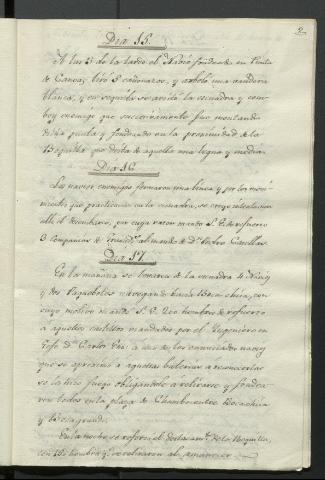 2
Dia 15.
A las 3 de la tarde el Navio fondeado en Punta
de Canoas tiró 3 cañonazos, y arboló una vandera
blanca, y en seguida se avistó la escuadra y com-
boy enemigo que succesivamente fue montando
dicha punta y fondeando en la proximidad de la
Boquilla que dista de aquella una legua y media.
Dia 16.
Los navios enemigos formaron una linea, y por los movi-
mientos que practicaron en la escuadra, se creyó intentasen
alli el desembarco, por cuya razon mandó S. E. de refuerzo
3 compañias de Granad.s al mando de D.n Pedro Casellas.
Dia 17.
En la mañana se levaron de la escuadra 4 Navios
y dos Paquebotes navegando hacia Bocachica, con
cuyo motivo mandó S. E. 200 hombres de refuerzo
a aquellos castillos mandados por el Ingeniero en
Gefe D.n Carlos a uno de los enunciados navios
que se aproximó a aquellas baterias a reconocerlas
se le hizo fuego obligandole a retirarse y fondea-
ron todos en la playa de Chamba entre Bocachica
y Bocagrande.
En la noche se reforzó el destacam.to de la Boquilla,
con 150 hombres q.e se retiraron al amanecer.